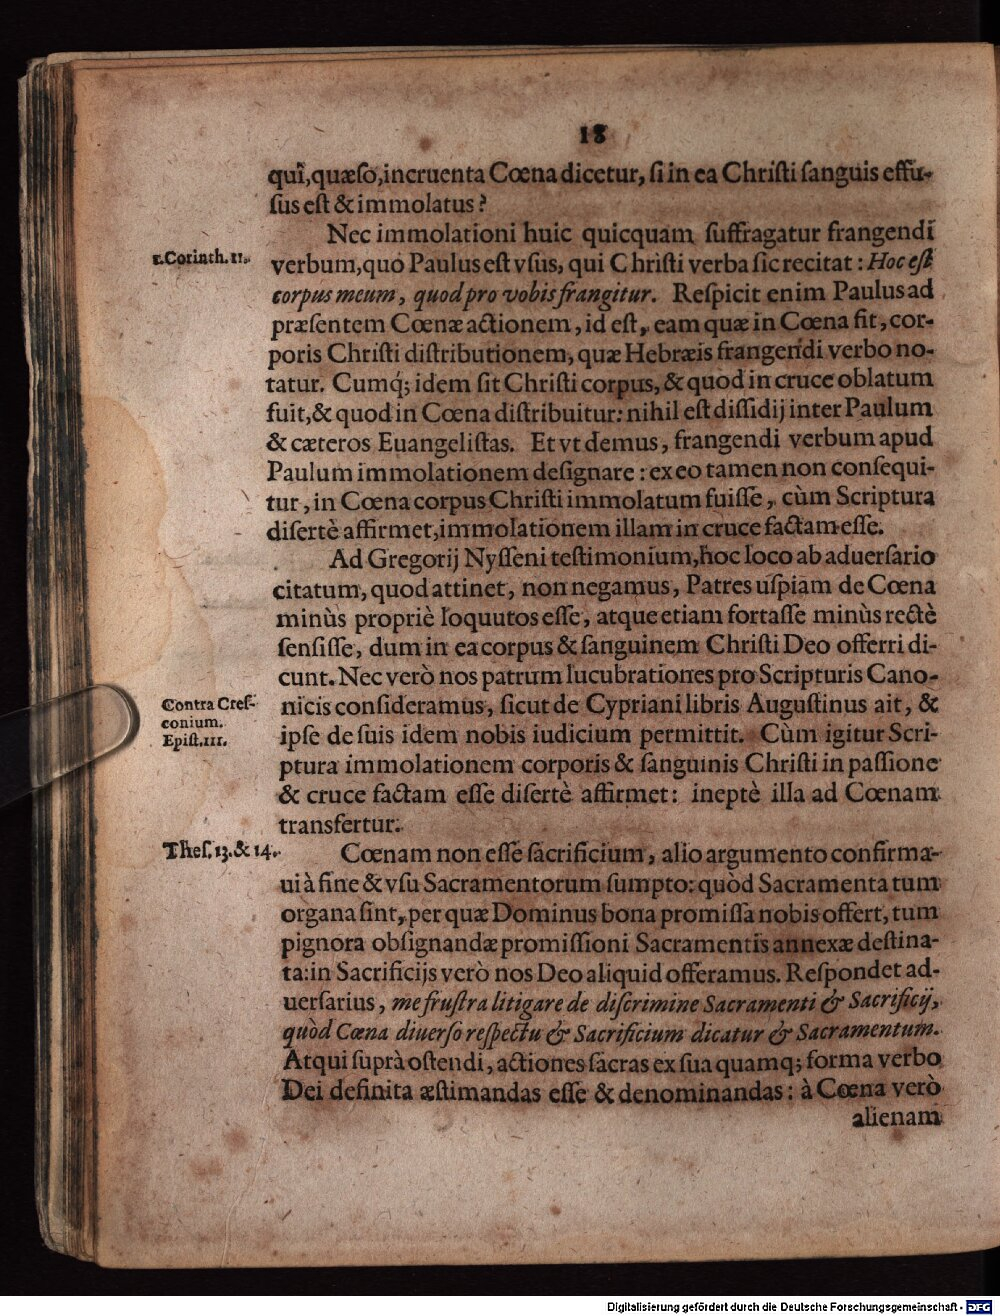 18
quî, quæso, incruenta Cœna dicetur, si in ea Christi sanguis effu-
sus est & immolatus?
Nec immolationi huic quicquam suffragatur frangendi
1. Corinth. 11.
verbum, quo Paulus est vsus, qui Christi verba sic recitat: Hoc est
corpus meum, quod pro vobis frangitur. Respicit enim Paulus ad
præsentem Cœnæ actionem, id est, eam quæ in Cœna fit, cor-
poris Christi distributionem, quæ Hebræis frangendi verbo no-
tatur. Cumq́; idem sit Christi corpus, & quod in cruce oblatum
fuit, & quod in Cœna distribuitur: nihil est dissidij inter Paulum
& cæteros Euangelistas. Et vt demus, frangendi verbum apud
Paulum immolationem designare: ex eo tamen non consequi-
tur, in Cœna corpus Christi immolatum fuisse, cùm Scriptura
disertè affirmet, immolationem illam in cruce factam esse.
Ad Gregorij Nysseni testimonium, hoc loco ab aduersario
citatum, quod attinet, non negamus, Patres uspiam de Cœna
minùs propriè loquutos esse, atque etiam fortasse minùs rectè
sensisse, dum in ea corpus & sanguinem Christi Deo offerri di-
cunt. Nec verò nos patrum lucubrationes pro Scripturis Cano-
Contra Cres-
conium.
Epist. 111.
nicis consideramus, sicut de Cypriani libris Augustinus ait, &
ipse de suis idem nobis iudicium permittit. Cùm igitur Scri-
ptura immolationem corporis & sanguinis Christi in passione
& cruce factam esse disertè affirmet: ineptè illa ad Cœnam
transfertur.
Thes. 13. & 14.
Cœnam non esse sacrificium, alio argumento confirma-
ui à fine & vsu Sacramentorum sumpto: quòd Sacramenta tum
organa sint, per quæ Dominus bona promissa nobis offert, tum
pignora obsignandæ promissioni Sacramentis annexæ destina-
ta: in Sacrificijs verò nos Deo aliquid offeramus. Respondet ad-
uersarius, me frustra litigare de discrimine Sacramenti & Sacrificij,
quòd Cœna diuerso respectu & Sacrificium dicatur & Sacramentum.
Atqui suprà ostendi, actiones sacras ex sua quamq; forma verbo
Dei definita æstimandas esse & denominandas: à Cœna verò
alienam
Digitalisierung gefördert durch die Deutsche Forschungsgemeinschaft - DFG